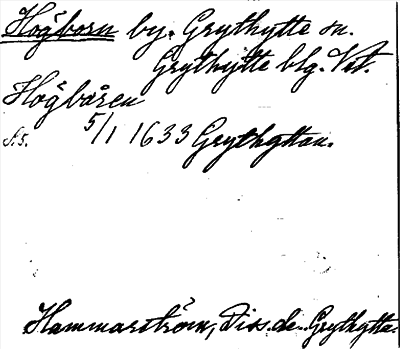 Högborn by. Grythytte sn.
Grythytte blg. Vst.
Högbåren
S. 5. 5/1 1633 Grythyttan.
Hammarström, Diss. de Grythytta.